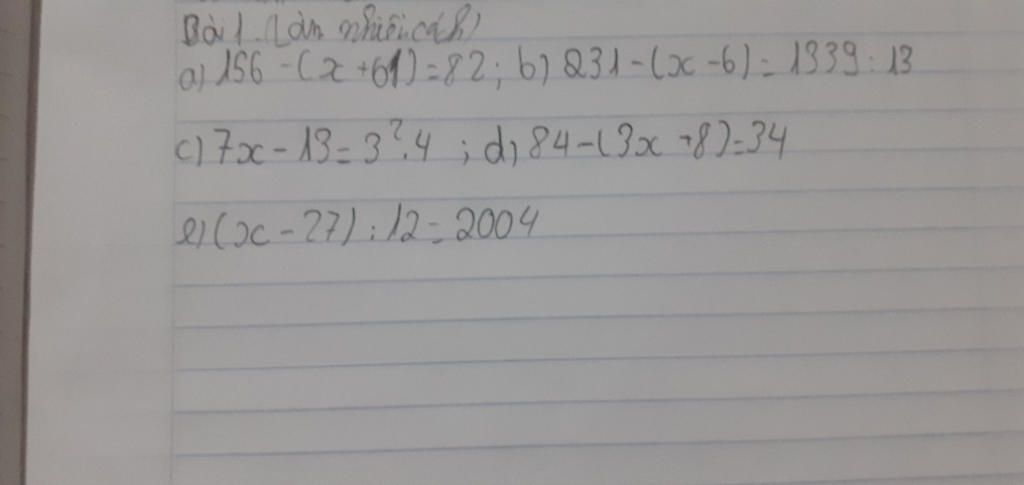 Bài 1. (Làm nhiều cách)
a) 156 - (x + 61) = 82 ; b) 231 - (x - 6) = 1339 : 13
c) 7x - 13 = 3².4 ; d) 84 - (3x + 8) = 34
e) (x - 27) : 12 = 2004